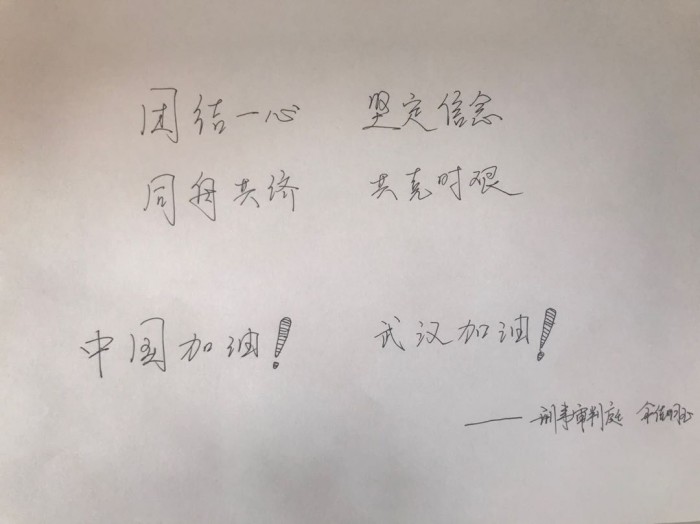 团结一心 坚定信念
同舟共济 共克时艰
中国加油! 武汉加油!
——刑事审判庭